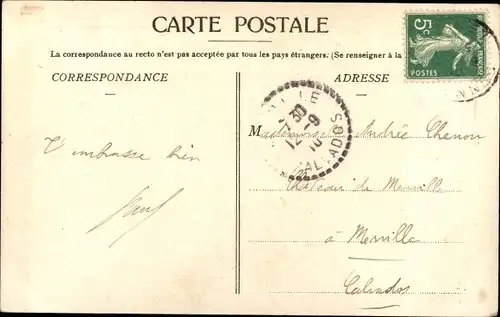 CARTE POSTALE
La correspondance au recto n'est pas acceptée par tous les pays étrangers. (Se renseigner à la
CORRESPONDANCE
ADRESSE
5c
POSTES
7 30
12 - 9
10
CALVADOS
Mademoiselle Andrée Chenon
Château de Merville
à Merville
Calvados
T'embrasse bien